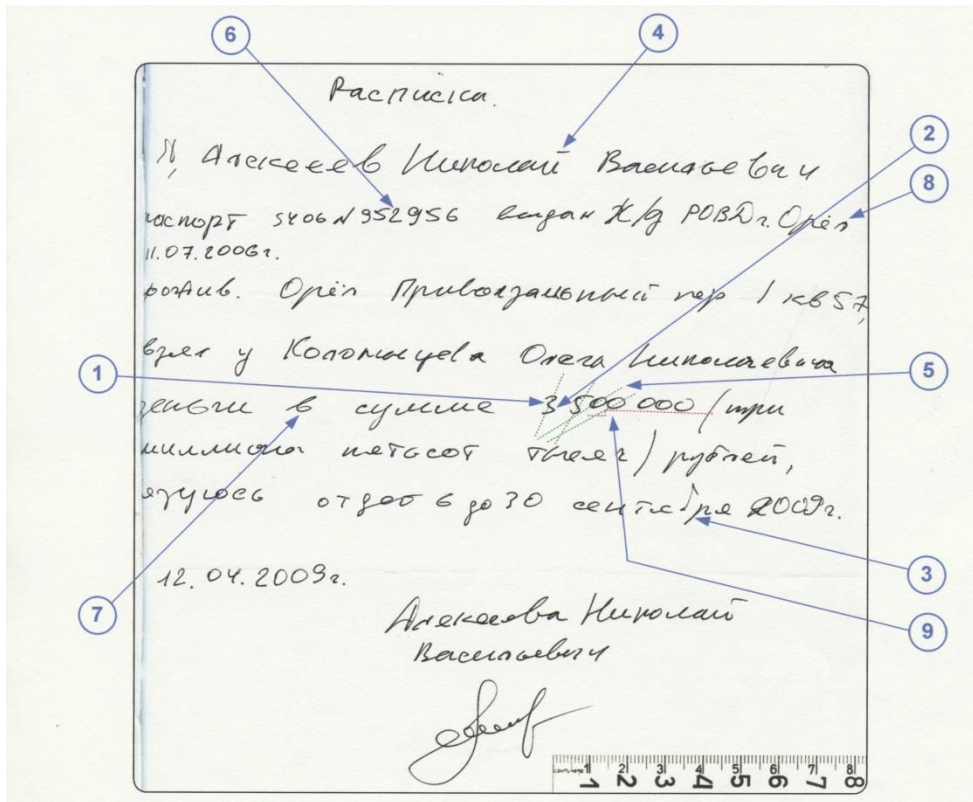 6
4
Расписка.
2
Я, Алексеев Николай Васильевич
8
паспорт 5406 N952956 выдан Ж/д РОВД г. Орёл
11.07.2006г.
прожив. Орёл Привокзальный пер 1 кв 57,
взял у Коломыцева Олега Николаевича
1
5
деньги в сумме 3 500 000 (три
миллиона пятьсот тысяч) рублей,
язуюсь отдать до 30 сентября 2009г.
12.04.2009г.
3
7
Алексеева Николай
9
Васильевич
1 2 3 4 5 6 7 8
1 2 3 4 5 6 7 8